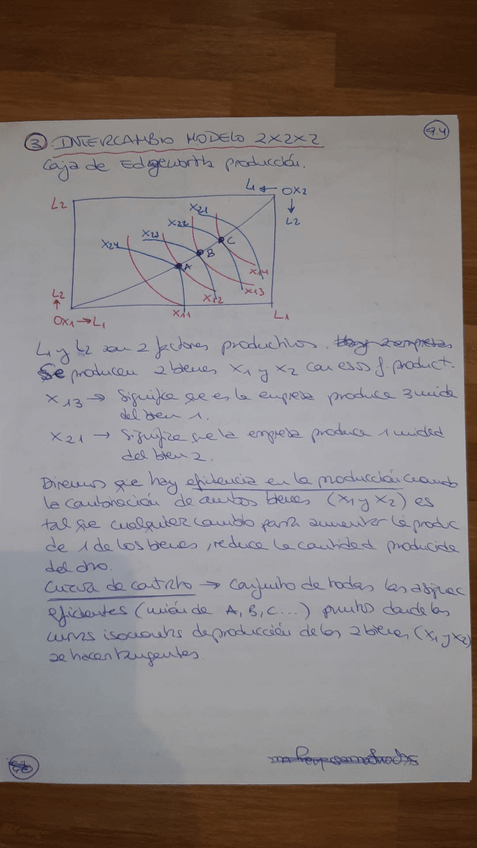 3 INTERCAMBIO MODELO 2X2X2
9.4
Caja de Edgeworth producción.
L2
L1 ← OX2
↓
L2
X21
X22
X23
X24
A
B
C
X14
X13
X12
X11
L2
↑
OX1 → L1
L1
L1 y L2 son 2 factores productivos. Hay 2 empresas
Se producen 2 bienes X1 y X2 con esos f. product.
X13 → Significa que es la empresa produce 3 unida
del bien 1.
X21 → Significa que la empresa produce 1 unidad
del bien 2.
Diremos que hay eficiencia en la producción cuando
la combinación de ambos bienes (X1 y X2) es
tal que cualquier cambio para aumentar la produc
de 1 de los bienes, reduce la cantidad producida
del otro.
Curva de contrato → Conjunto de todas las asignac
eficientes (unión de A, B, C...) punto donde las
curvas isocuantas de producción de los 2 bienes (X1 y X2)
se hacen tangentes.